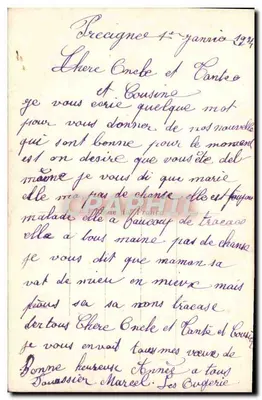 1er janvier 192
Chere Oncle et Tante
et Cousine
je vous ecrie quelque mot
pour vous donner de nos nouvelle
qui sont bonne pour le moment
est on desire que vous ete del
maime je vous di que marie
elle na pas de chanse elle est toujour
malade elle a baucoup de tracace
elle a tous maine pas de chanse
je vous dit que maman sa
vat de mieu en mieux mais
sa sa nous tracase
der tous Chere Oncle et Tante et Cousine
je vous envoit tous mes vœux de
Bonne heureuse Année a tous
Marcel Les Eugerie